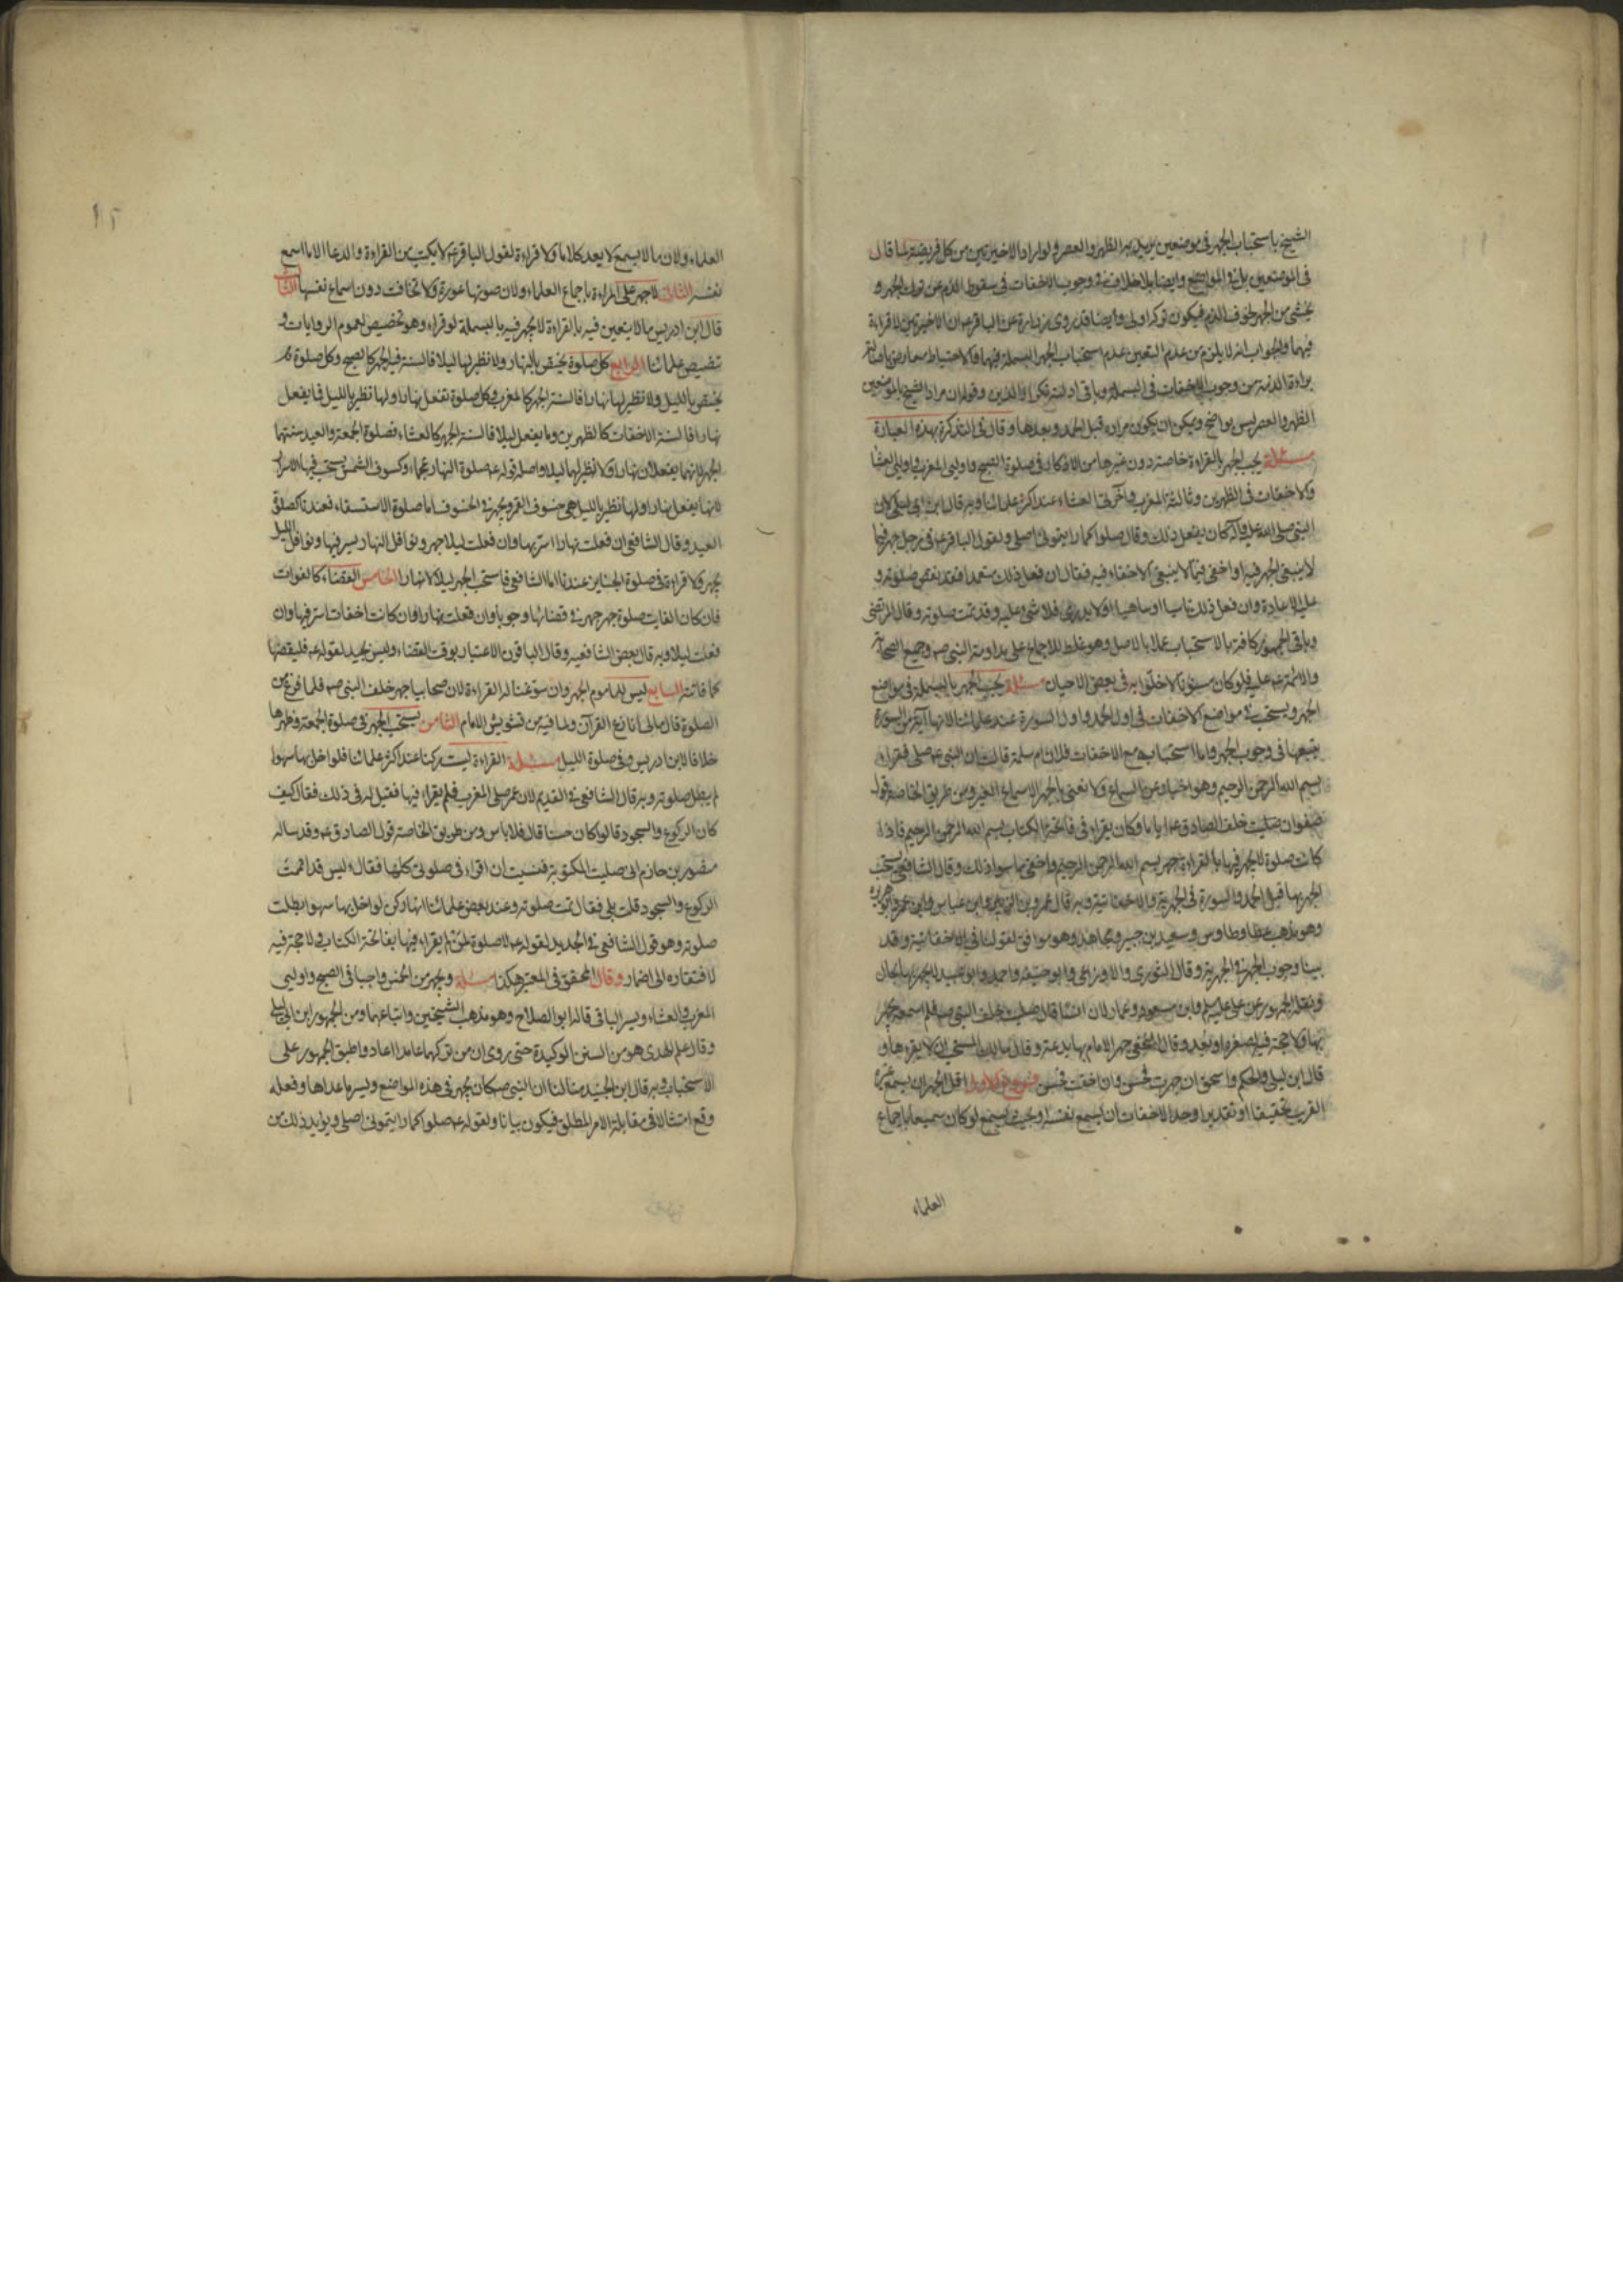 الشيخ باستحباب الجهر في موضعين يريد به الظهر والعصر ولو اراد الاخيرتين من كل فريضة لما قال
في الموضعين بل في المواضع وايضا بلا خلاف في وجوب الاخفات في سقوط الذم عن ترك الجهر و
يخشى من الجهر لحوق الذم فيكون تركه اولى وايضا قد روى زرارة عن الباقر عه ان الاخيرتين لا قراءة
فيهما والجواب انه لا يلزم من عدم التعيين عدم استحباب الجهر بالبسملة فيهما والاحتياط معارض باصالة
براءة الذمة من وجوب الاخفات في البسملة وباقي ادلته وقوله ان مراد الشيخ بالموضعين
الظهر والعصر ليس بواضح ويمكن ان يكون مراده قبل الحمد وبعدها وقال في التذكرة بهذه العبارة
مسئلة يجب الجهر بالقراءة خاصة دون غيرها من الاذكار في صلوة الصبح واوليي المغرب واوليي العشا
والاخفات في الظهرين وثالثة المغرب واخرتي العشاء عند اكثر علمائنا وبه قال ابن ابي ليلى لان
النبي صلى الله عليه وآله كان يفعل ذلك وقال صلوا كما رايتموني اصلي ولقول الباقر عه في رجل جهر فيما
لا ينبغي الجهر فيه او اخفى فيما لا ينبغي الاخفاء فيه فقال ان فعل ذلك متعمدا فقد نقض صلوته و
عليه الاعادة وان فعل ذلك ناسيا او ساهيا او لا يدري فلا شيء عليه وقد تمت صلوته وقال المرتضى
وباقي الجمهور كافة بالاستحباب عملا بالاصل وهو غلط للاجماع على مداومة النبي صه وجميع الصحابة
والائمة عه عليه فلو كان مسنونا لاخلوا به في بعض الاحيان مسئلة يجب الجهر بالبسملة في مواضع
الجهر ويستحب في مواضع الاخفات في اول الحمد واول السورة عند علمائنا لانها آية من السورة
يتبعها في وجوب الجهر واما استحبابه مع الاخفات فلان ام سلمة قالت ان النبي عه صلى فقراء
بسم الله الرحمن الرحيم وهو اخبار عن السماع ولا نعني بالجهر الا سماع الغير ومن طريق الخاصة قول
صفوان صليت خلف الصادق عه اياما وكان يقراء في فاتحة الكتاب بسم الله الرحمن الرحيم فاذا
كانت صلوة لا يجهر فيها بالقراءة جهر ببسم الله الرحمن الرحيم واخفى ما سوا ذلك وقال الشافعي يستحب
الجهر بها قبل الحمد والسورة في الجهرية والاخفاتية وبه قال عمر وبن الزبير وابن عباس وابن عمر وابو هريرة
وهو مذهب عطا وطاوس وسعيد بن جبير ومجاهد وهو موافق لقولنا في الاخفاتية وقد
بينا وجوب الجهر في الجهرية وقال الثوري والاوزاعي وابو حنيفة واحمد وابو عبيد لا يجهر بها بحال
ونقله الجمهور عن علي عليه السلم وابن مسعود وعمار لان انسا قال صليت خلف النبي صه فلم اسمعه يجهر
بها ولا حجة فيه لصغره او بعده وقال النخعي جهر الامام بها بدعة وقال مالك المستحب ان لا يقرءها و
قال ابن ليلى والحكم واسحق ان جهرت فحسن وان اخفت فحسن فروع الاول اقل الجهر ان يسمع غيره
القريب تحقيقا او تقديرا وحد الاخفات ان يسمع نفسه او بحيث يسمع لو كان سميعا باجماع
العلماء
العلماء ولان ما لا يسمع لا يعد كلاما ولا قراءة لقول الباقر عه لا يكتب من القراءة والدعا الا ما اسمع
نفسه الثاني لا جهر على المراءة باجماع العلماء ولان صوتها عورة ولا تخافت دون اسماع نفسها الثالث
قال ابن ادريس ما لا يتعين فيه بالقراءة لا يجهر فيه بالبسملة لو قراء وهو تخصيص لعموم الروايات و
تنصيص علمائنا الرابع كل صلوة يختص بالنهار ولا نظير لها ليلا فالسنة فيه الجهر كالصبح وكل صلوة
يختص بالليل ولا نظير لها نهارا فالسنة الجهر كالمغرب وكل صلوة تفعل نهارا ولها نظير بالليل فما يفعل
نهارا فالسنة الاخفات كالظهرين وما يفعل ليلا فالسنة الجهر كالعشاء فصلوة الجمعة والعيد سنتهما
الجهر لانهما يفعلان نهارا ولا نظير لهما ليلا واصله قوله عه صلوة النهار عجماء وكسوف الشمس يستحب فيها الاسرار
لانها يفعل نهارا ولها نظير بالليل هي خسوف القمر ويجهر في الخسوف اما صلوة الاستسقاء فعندنا كصلوة
العيد وقال الشافعي ان فعلت نهارا اسر بها وان فعلت ليلا جهر ونوافل النهار يسر فيها ونوافل الليل
يجهر ولا قراءة في صلوة الجنايز عندنا اما الشافعي فاستحب الجهر ليلا لا نهارا الخامس القضاء كالفوات
فان كان الفايت صلوة جهر جهر في قضائها وجوبا وان فعلت نهارا وان كانت اخفات اسر فيها وان
فعلت ليلا وبه قال بعض الشافعيه وقال الباقون الاعتبار بوقت القضاء وليس بجيد لقوله عه فليقضها
كما فاتته السابع ليس للماموم الجهر وان سوغنا له القراءة لان صحابيا جهر خلف النبي صه فلما فرغ من
الصلوة قال مالي انازع القران ولما فيه من تشويش الامام الثامن يستحب الجهر في صلوة الجمعة وظهرها
خلافا لابن ادريس وفي صلوة الليل مسئلة القراءة ليست ركنا عند اكثر علمائنا فلو اخل بها سهوا
لم يبطل صلوته وبه قال الشافعي في القديم لان عمر صلى المغرب فلم يقراء فيها فقيل له في ذلك فقال كيف
كان الركوع والسجود قالوا كان حسنا قال فلا باس ومن طريق الخاصة قول الصادق عه وقد ساله
منصور بن حازم اني صليت المكتوبة فنسيت ان اقراء في صلوتي كلها فقال اليس قد اتممت
الركوع والسجود قلت بلى فقال تمت صلوته وعند بعض علمائنا انها ركن لو اخل بها سهوا بطلت
صلوته وهو قول الشافعي في الجديد لقوله عه لا صلوة لمن لم يقراء فيها بفاتحة الكتاب ولا حجة فيه
لافتقاره الى اضمار وقال المحقق في المعتبر هكذا مسئلة ويجهر من الخمس واجبا في الصبح واوليي
المغرب والعشاء ويسر الباقي قاله ابو الصلاح وهو مذهب الشيخين واتباعهما ومن الجمهور ابن ابي ليلى
وقال علم الهدى هو من السنن الوكيدة حتى روى ان من تركهما عامدا اعاد واطبق الجمهور على
الاستحباب وبه قال ابن الجنيد منا لنا ان النبي صه كان يجهر في هذه المواضع ويسر ما عداها وفعله
وقع امتثالا في مقابلة الامر المطلق فيكون بيانا ولقوله عه صلوا كما رايتموني اصلي ويؤيد ذلك من